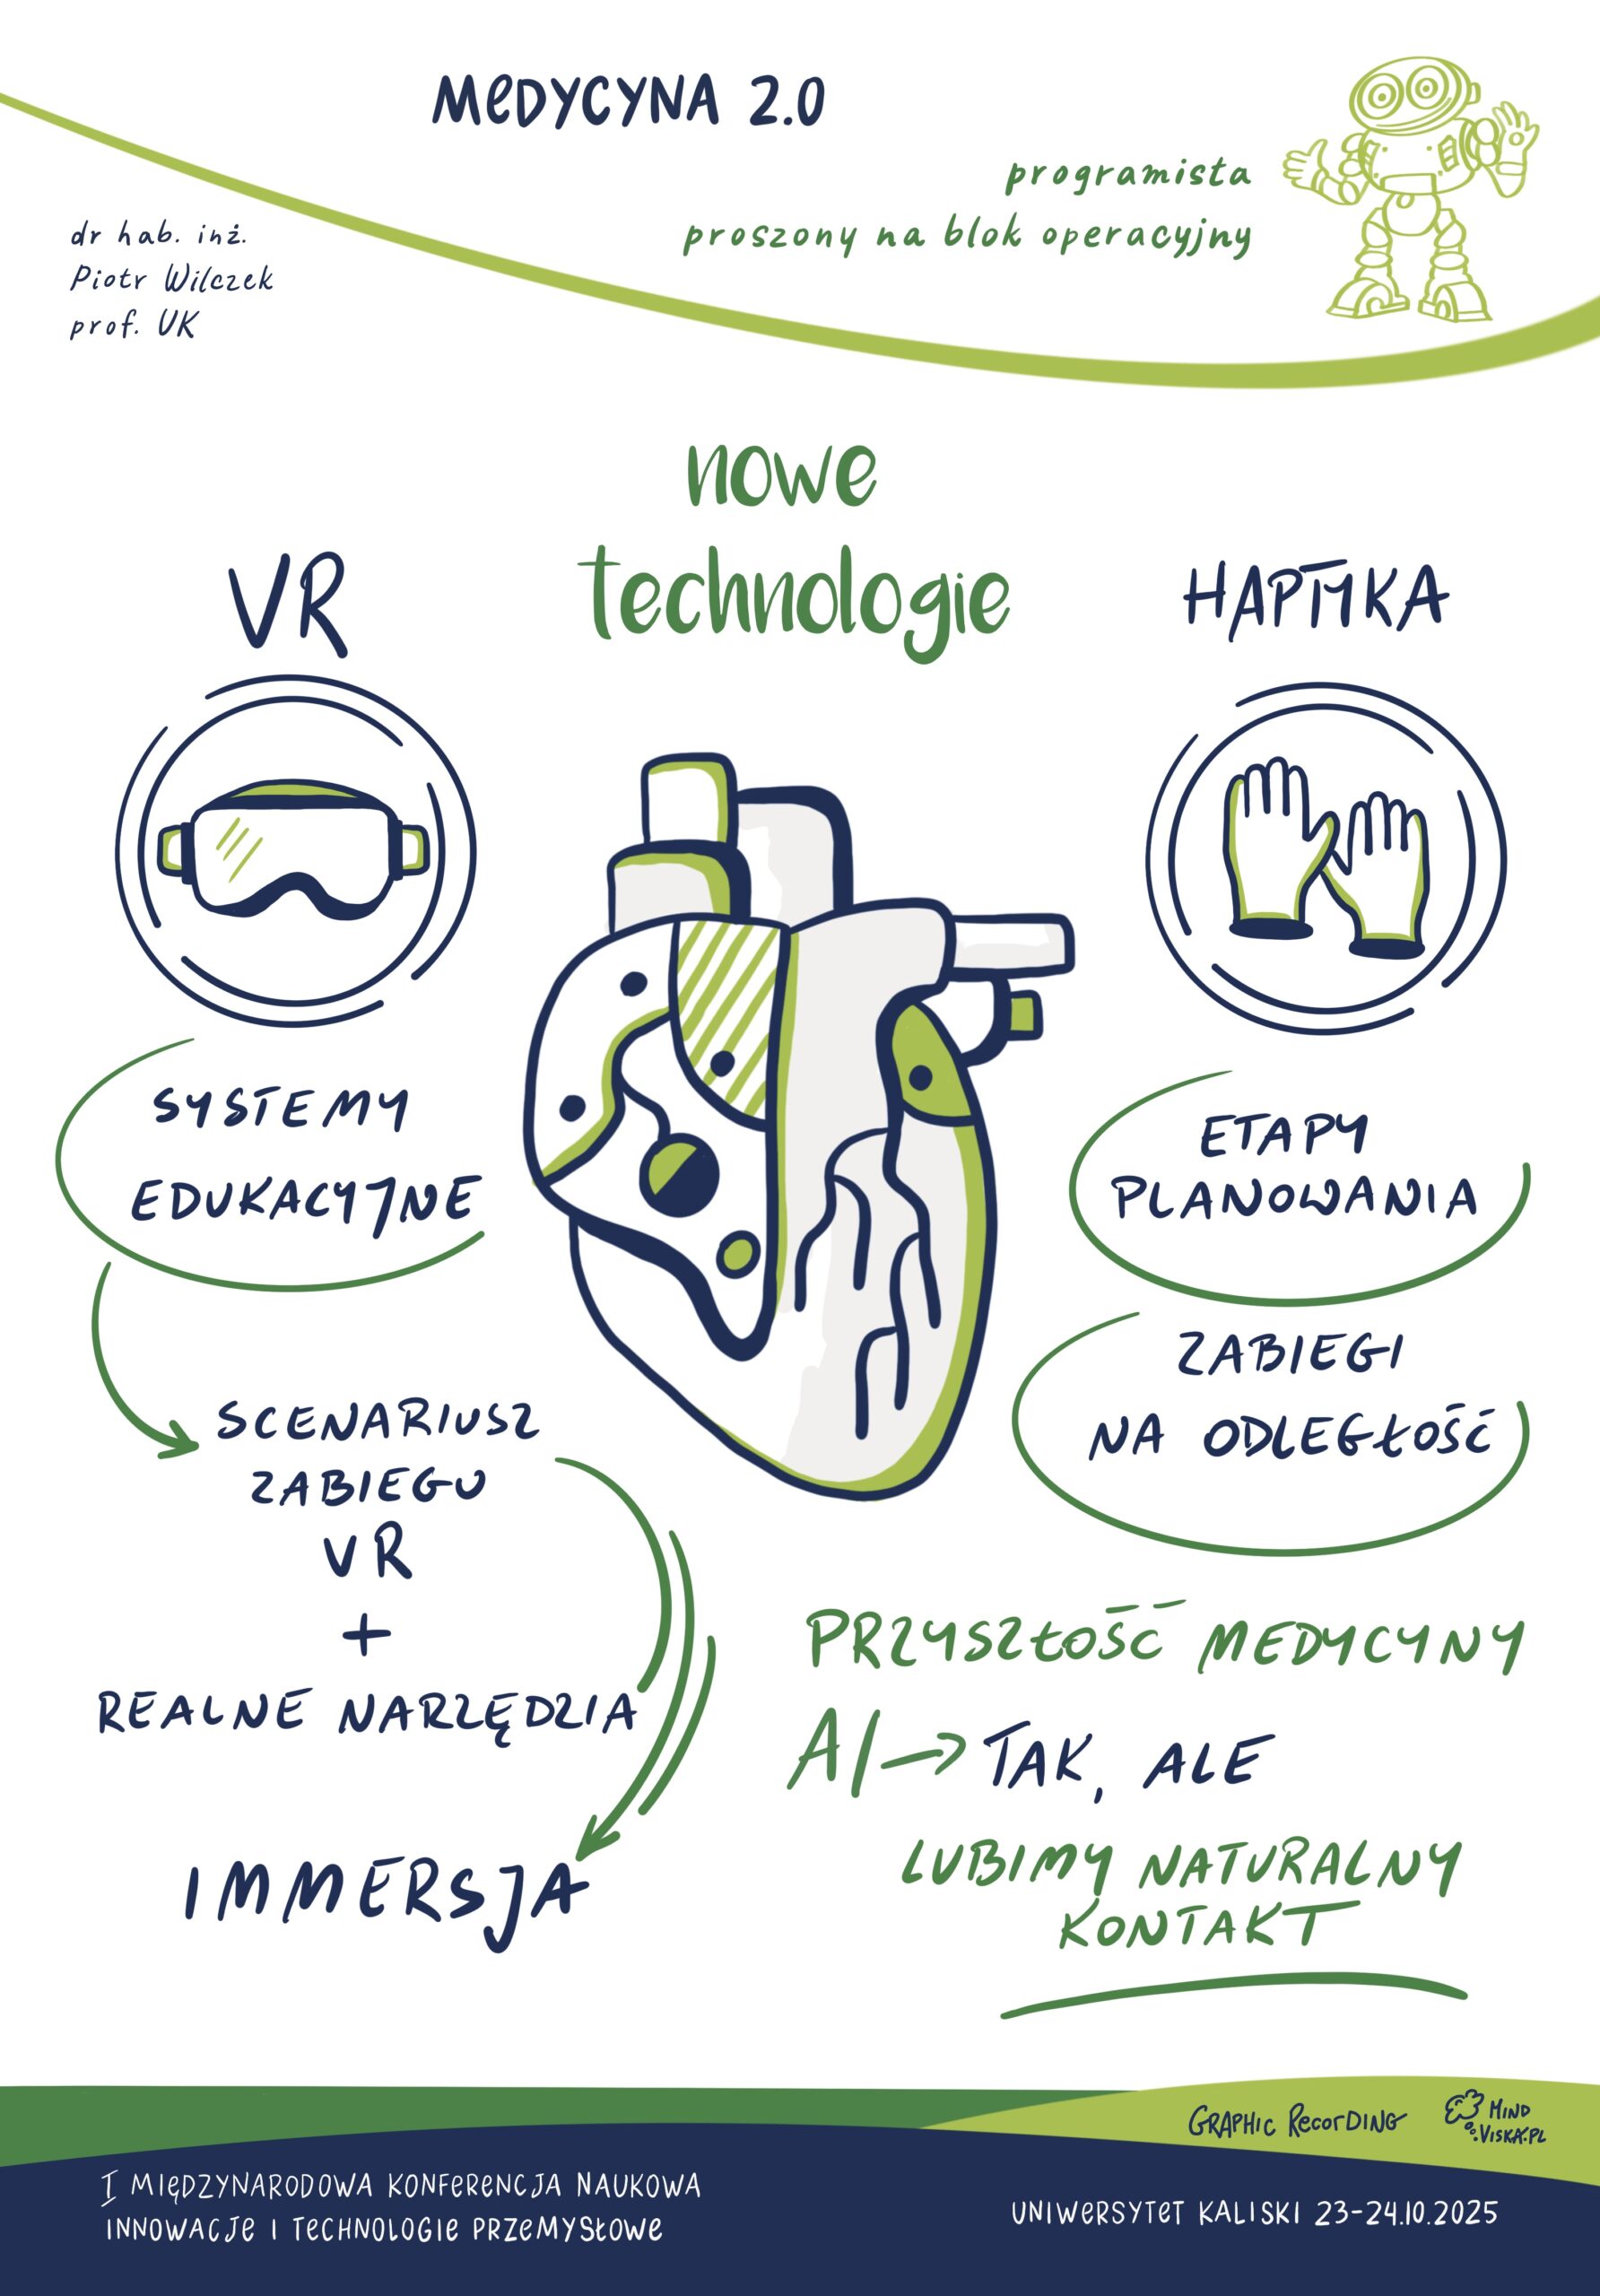 MEDYCYNA 2.0
programista
proszony na blok operacyjny
dr hab. inż.
Piotr Wilczek
prof. UK
nowe
technologie
VR
SYSTEMY
EDUKACYJNE
SCENARIUSZ
ZABIEGU
VR
+
REALNE NARZĘDZIA
IMMERSJA
HAPTYKA
ETAPY
PLANOWANIA
ZABIEGI
NA ODLEGŁOŚĆ
PRZYSZŁOŚĆ MEDYCYNY
AI → TAK, ALE
LUBIMY NATURALNY
KONTAKT
GRAPHIC RECORDING
MIND
VISKA.PL
I MIĘDZYNARODOWA KONFERENCJA NAUKOWA
INNOWACJE I TECHNOLOGIE PRZEMYSŁOWE
UNIWERSYTET KALISKI 23-24.10.2025